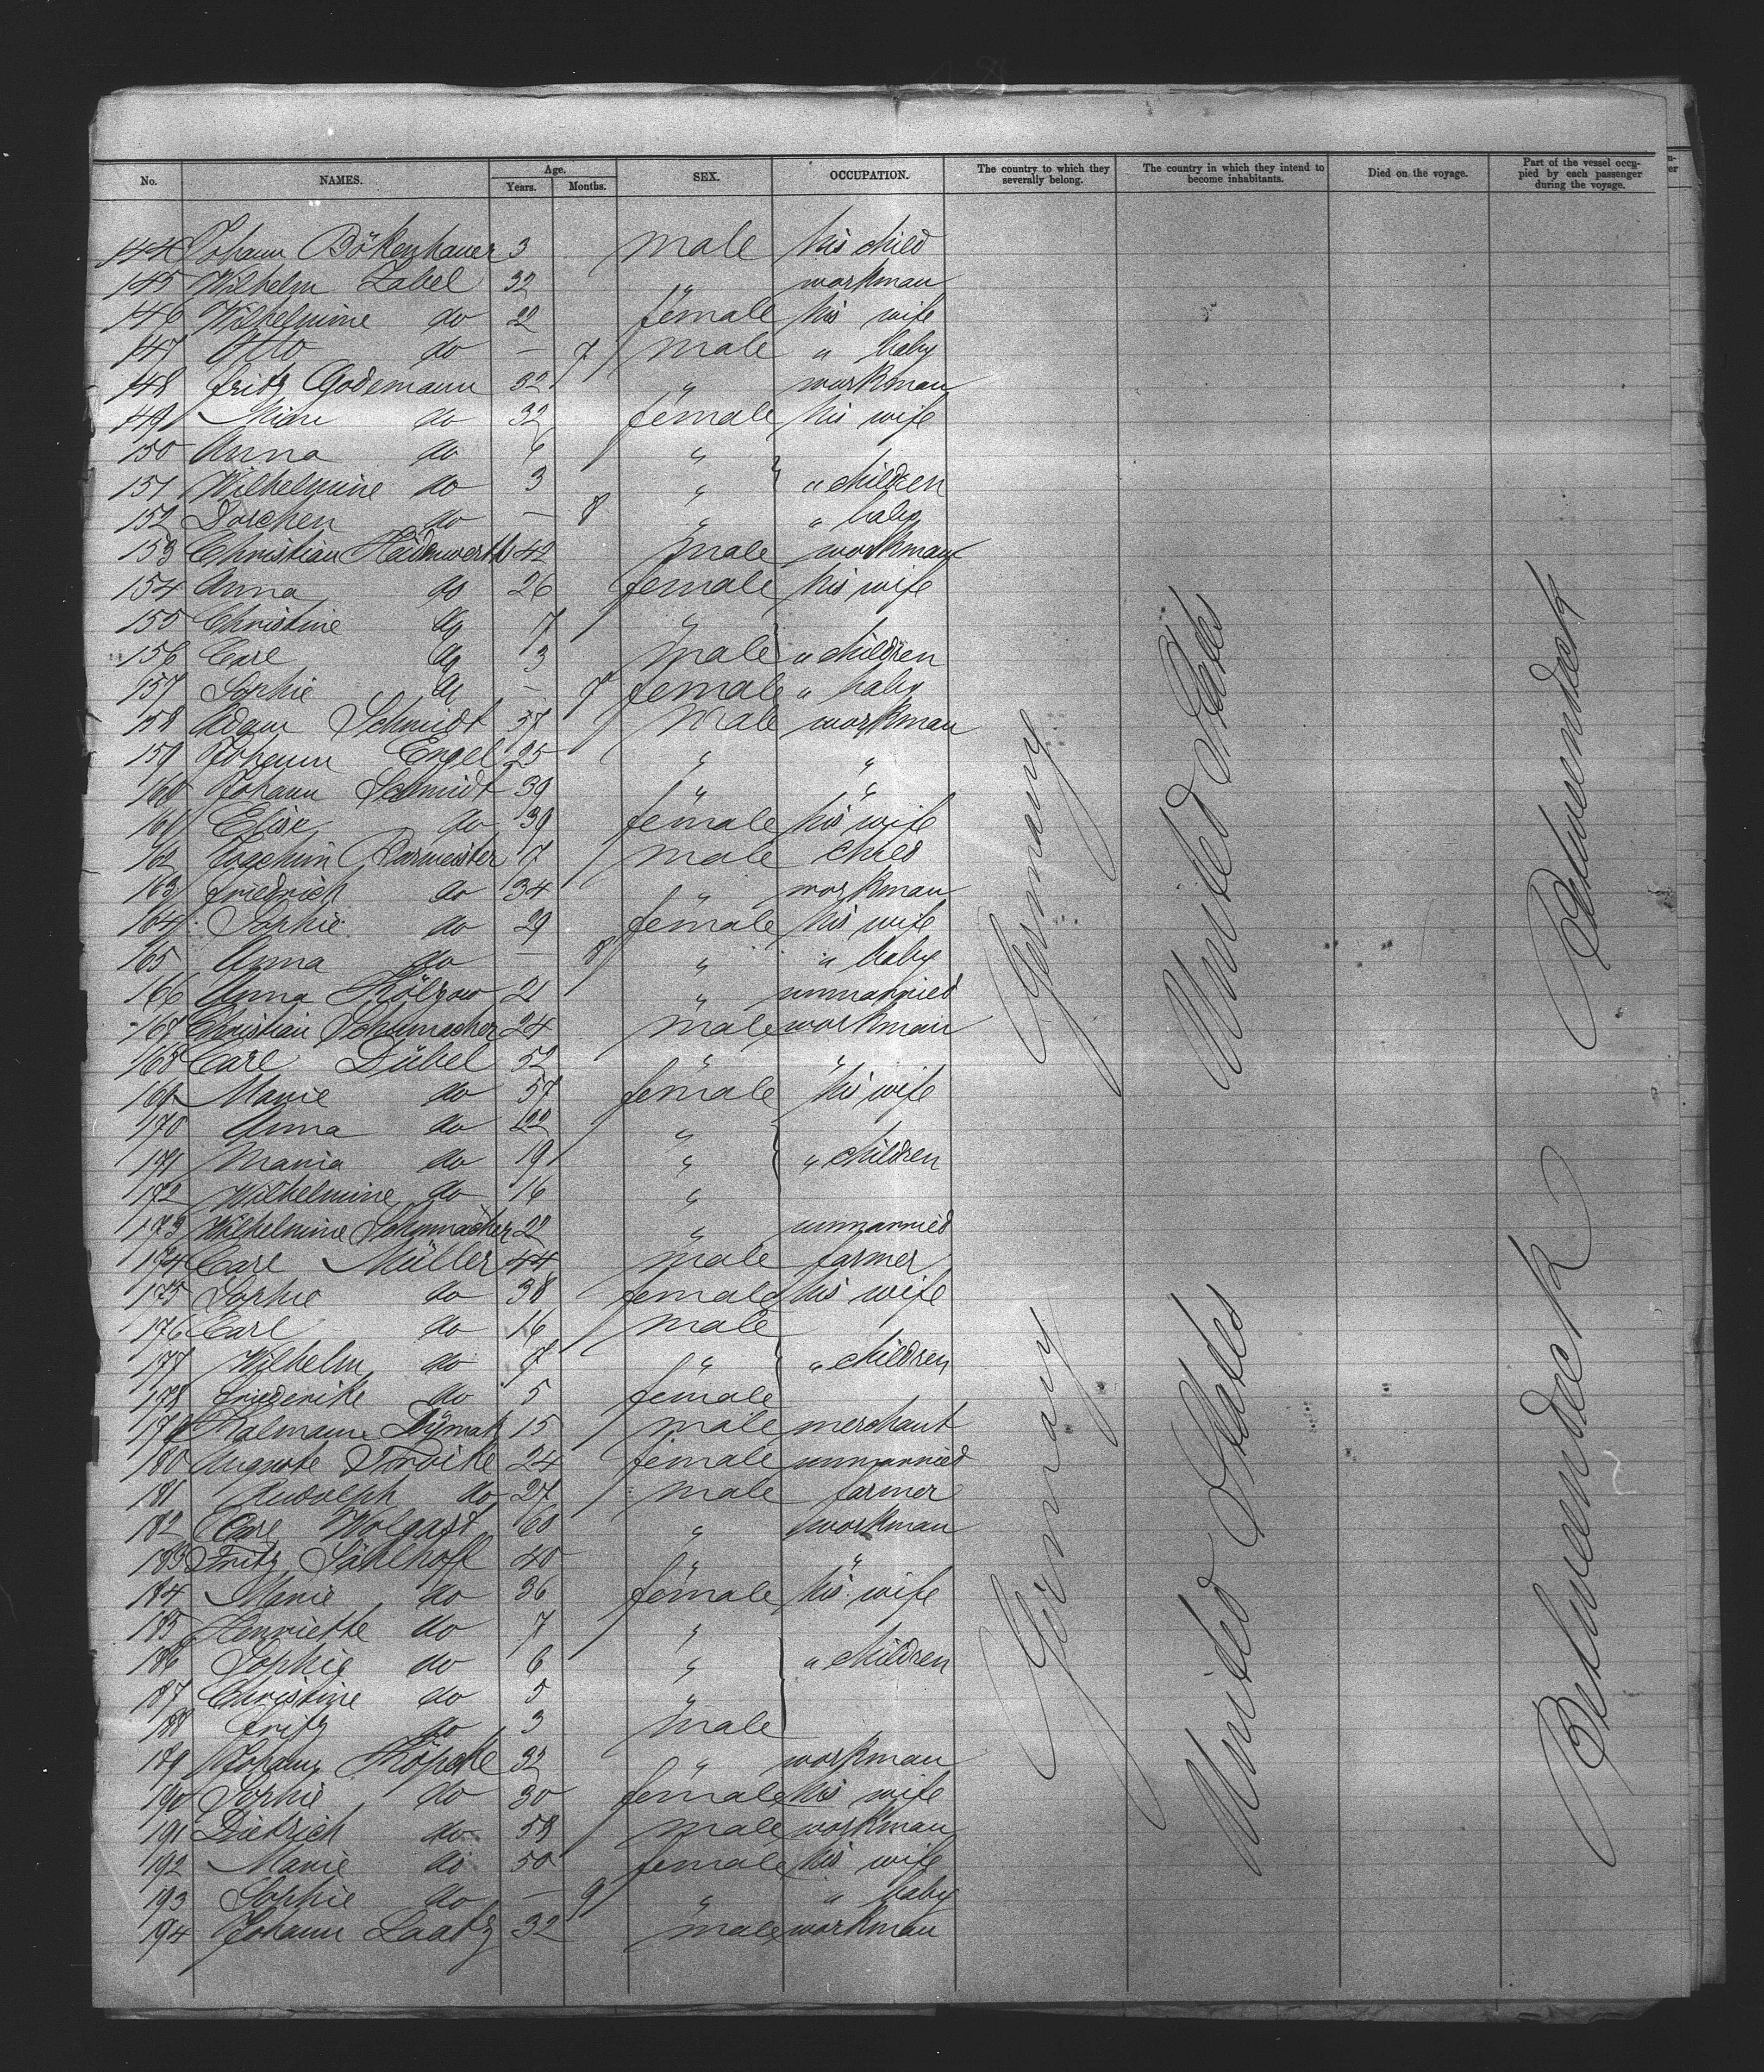 No. NAMES. Age. Years. Months. SEX. OCCUPATION. The country to which they severally belong. The country in which they intend to become inhabitants. Died on the voyage. Part of the vessel occupied by each passenger during the voyage.
144 Johann Bökenhauer 3 male his child
145 Wilhelm Zabel 32 " workman
146 Wilhelmine do 22 female his wife
147 Otto do — 7 male " baby
148 Fritz Godemann 32 " workman
149 do 32 female his wife
150 Anna do 6 "
151 Wilhelmine do 3 " " children
152 Dorchen do — 8 " " baby
153 Christian 42 male workman
154 Anna do 26 female his wife
155 Christine do 7 "
156 Carl do 3 male " children
157 Sophie do — 7 female " baby
158 Adam Schmidt 57 male workman
159 Johann Engel 25 " "
160 Johann Schmidt 39 " "
161 Elise do 39 female his wife
162 Joachim Darmeister 7 male child
163 Friedrich do 34 " workman
164 Sophie do 29 female his wife
165 Anna do — 8 " " baby
166 Anna Kölzow 21 " unmarried
167 Christian Schumacher 24 male workman
168 Carl Dübel 52 " "
169 Marie do 57 female his wife
170 Anna do 22 "
171 Maria do 19 " " children
172 Wilhelmine do 16 "
173 Wilhelmine Schumacher 22 " unmarried
174 Carl Müller 44 male farmer
175 Sophie do 38 female his wife
176 Carl do 16 male
177 Wilhelm do 7 " " children
178 Friederike do 5 female
179 Kalmann 15 male merchant
180 Auguste 24 female unmarried
181 Rudolph do 27 male farmer
182 Carl Wolgast 60 " workman
183 Fritz Sählhoff 40 " "
184 Marie do 36 female his wife
185 Henriette do 7 "
186 Sophie do 6 " " children
187 Christine do 5 "
188 Fritz do 3 male
189 Johann Köpcke 32 " workman
190 Sophie do 30 female his wife
191 Dietrich do 58 male workman
192 Marie do 50 female his wife
193 Sophie do — 9 " " baby
194 Johann Laatz 32 male workman
Germany United States Betweendeck
Germany United States Betweendeck